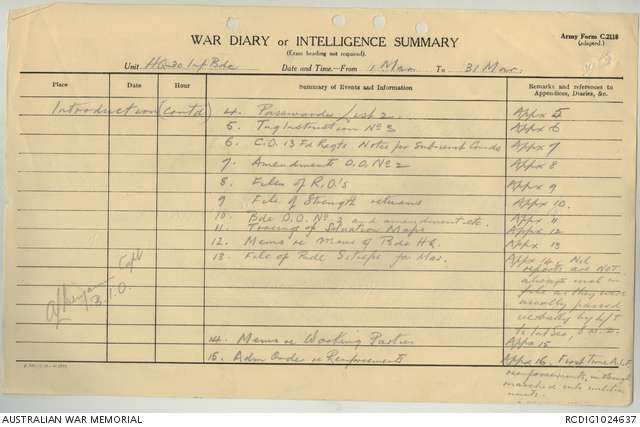 Army Form C.2118
(adapted.)
WAR DIARY or INTELLIGENCE SUMMARY
(Erase heading not required).
Unit HQ 20 Inf Bde Date and Time—From 1 Mar. To 31 Mar.
Place Date Hour Summary of Events and Information Remarks and references to Appendices, Diaries, &c.
Introduction (contd) 4. Passwords List 2 Appx 5
5. Trg Instruction No 3 Appx 6
6. C.O. 13 Fd Regts Notes for Appx 7
7. Amendments O.O. No 2 Appx 8
8. Files of R.O.'s Appx 9
9 File of Strength returns Appx 10.
10 Bde O.O. No 3 and amendment etc. Appx 11
11. Tracing of Situation Maps Appx 12
12. Memo re Move of Bde HQ. Appx 13
13. File of Bde Sitreps for Mar. Appx 14. Nil
reports are NOT
always sent in
file as they were
usually passed
verbally by
to
Capt
B.I.O.
14. Memo re Working Parties Appx 15
15. Adm Order re Reinforcements Appx 16. First time A.I.F.
reinforcements
marched into militia
units.
AUSTRALIAN WAR MEMORIAL RCDIG1024637